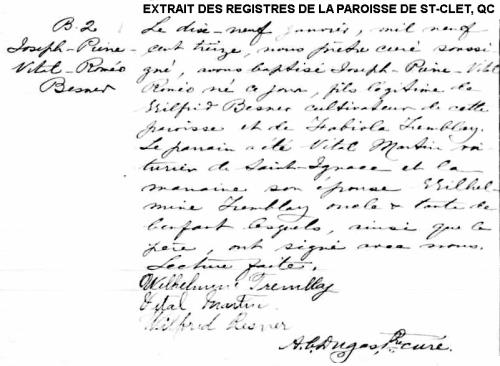 EXTRAIT DES REGISTRES DE LA PAROISSE DE ST-CLET, QC
B. 2
Joseph-Pierre-
Vital-Roméo
Besner
Le dix-neuf janvier, mil neuf
cent treize, nous prêtre curé soussi
gné, avons baptisé Joseph-Pierre-Vital
Roméo né ce jour, fils légitime de
Wilfrid Besner cultivateur de cette
paroisse et de Fabiola Tremblay.
Le parrain a été Vital Martin voi
turier de Saint-Ignace et la
marraine son épouse Wilhel
mine Tremblay oncle & tante de
l'enfant lesquels, ainsi que le
père, ont signé avec nous.
Lecture faite.
Wilhelmine Tremblay
Vital Martin
Wilfrid Besner
A. C. Dugas, Ptre curé.